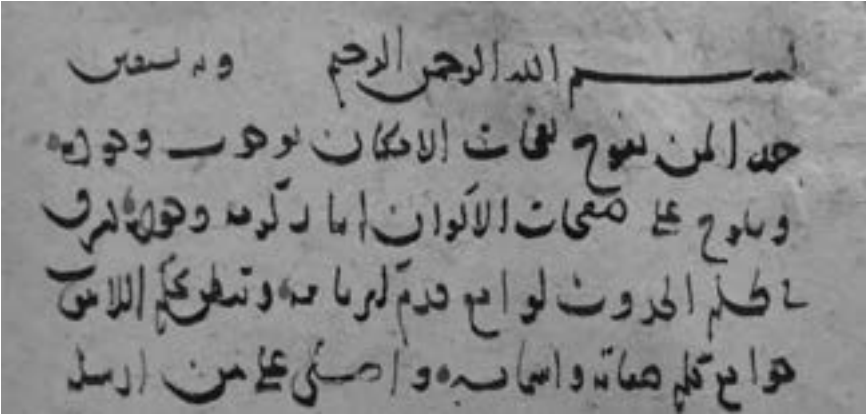 بسم الله الرحمن الرحيم وبه نستعين
حمدا لمن تفوح نفحات الامكان بوجوب وجوده
ويلوح على صفحات الاكوان اثار كرمه وجوده تعرف
في ظلم الحدوث لوامع قدم كبريائه وتنطق بحكم اللاهوت
جوامع كلم صفاته واسمائه واصلي على من ارسله